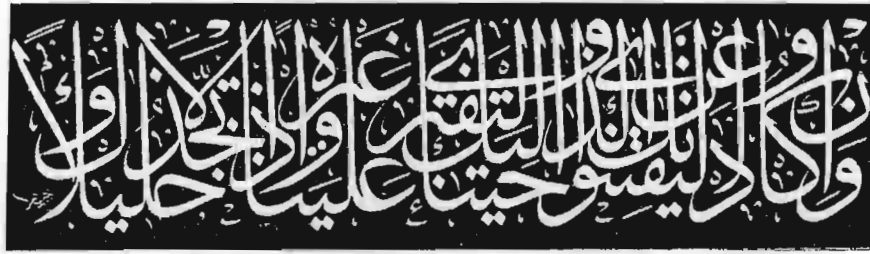 وإن كادوا ليفتنونك عن الذي أوحينا إليك لتفتري علينا غيره وإذا لاتخذوك خليلا